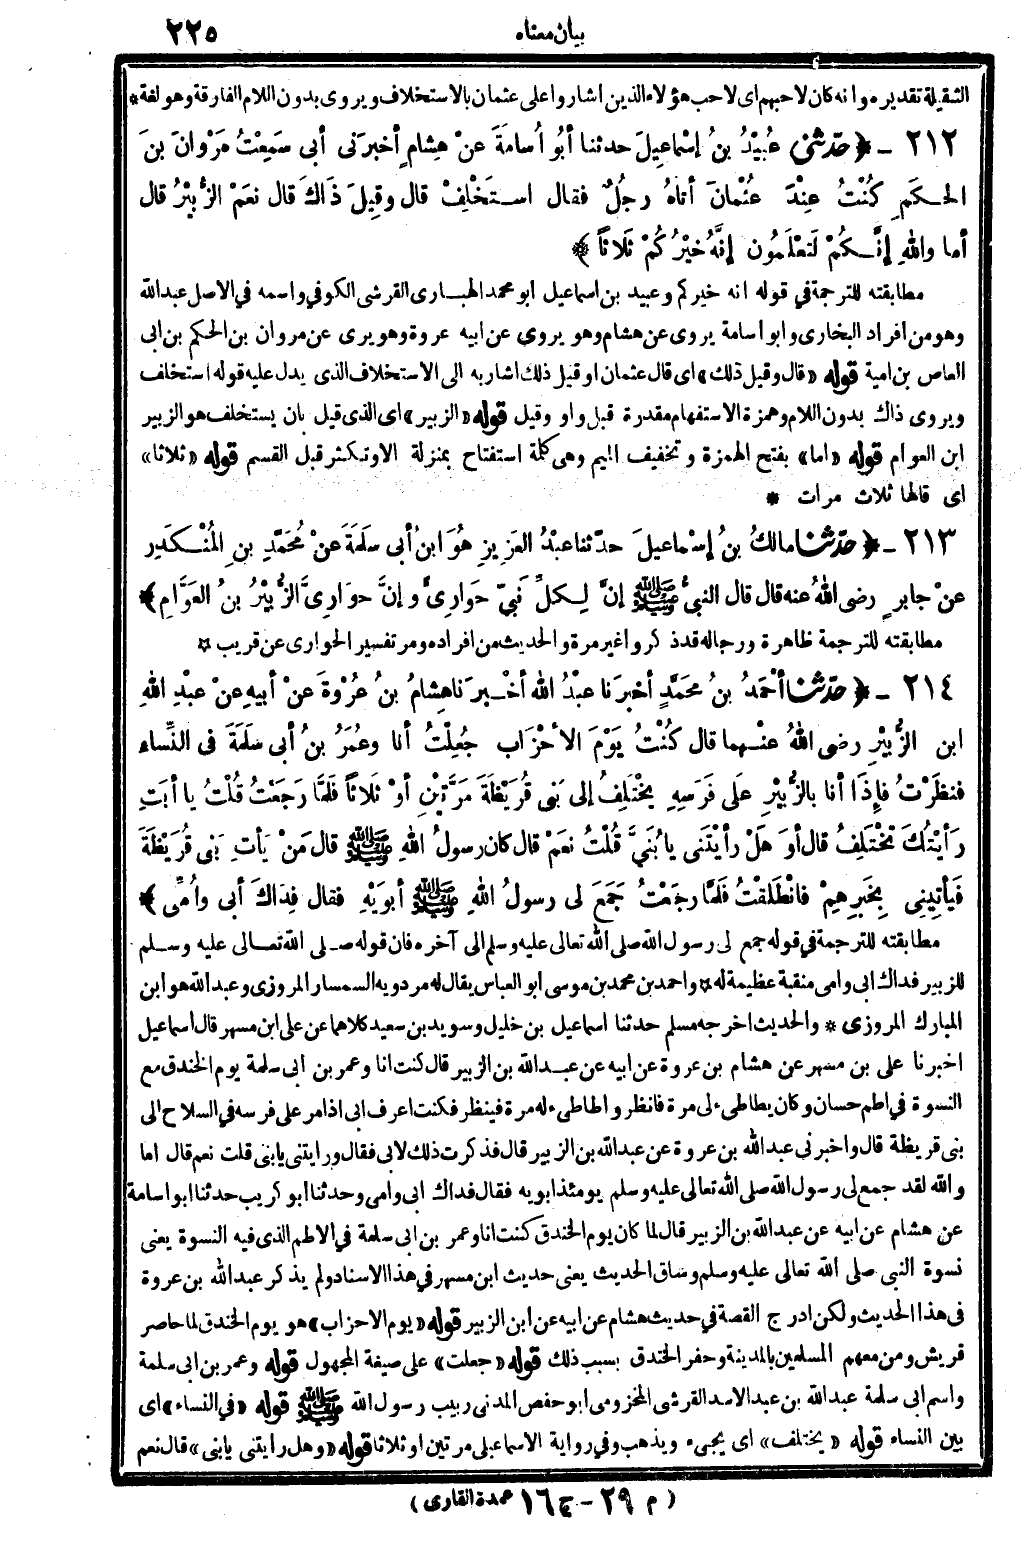 بيان معناه
٢٢٥
الثقيلة تقديره وانه كان لاحبهم اى لاحب هؤلاء الذين اشاروا على عثمان بالاستخلاف ويروى بدون اللام الفارقة وهو لغة *
٢١٢ - ﴿ حَدَّثَنِي عُبَيْدُ بنُ إسْماعِيلَ حدثنا أبُو اُسامَةَ عنْ هِشامٍ أخبرَنى أبى سَمِعْتُ مَرْوانَ بنَ
الحَكَمِ كُنْتُ عِنْدَ عُثْمانَ أتاهُ رجُلٌ فقال اسْتَخْلِفْ قال وقِيلَ ذَاكَ قال نعَمْ الزُّبيْرُ قال
أما واللهِ إنَّكُمْ لَتَعْلَمُون إنَّهُ خيْرُكُمْ ثَلَاثاً ﴾
مطابقته للترجمة في قوله انه خيركم وعبيد بن اسماعيل ابو محمد الهبارى القرشى الكوفي واسمه في الاصل عبدالله
وهو من افراد البخارى وابو أسامة يروى عن هشام وهو يروي عن ابيه عروة وهو يرى عن مروان بن الحكم بن ابى
العاص بن امية قوله «قال وقيل ذلك» اى قال عثمان او قيل ذلك اشار به الى الاستخلاف الذى يدل عليه قوله استخلف
ويروى ذاك بدون اللام وهمزة الاستفهام مقدرة قبل واو وقيل قوله «الزبير» اى الذى قيل بان يستخلف هو الزبير
ابن العوام قوله «اما» بفتح الهمزة وتخفيف الميم وهى كلمة استفتاح بمنزلة الا وتكثر قبل القسم قوله «ثلاثا»
اى قالها ثلاث مرات *
٢١٣ - ﴿ حَدَّثَنا مالكُ بنُ إسْماعِيلَ حدّثنا عبْدُ العَزِيزِ هُوَ ابنُ أبى سلَمَةَ عنْ مُحَمَّدِ بنِ المُنْكَدِرِ
عنْ جابرٍ رضى اللهُ عنه قال قال النبىُّ ﷺ إنَّ لِكلِّ نَبيّ حَوارِىَّ وإنَّ حوارِىَّ الزُّبيْرُ بنُ العَوَّامِ ﴾
مطابقته للترجمة ظاهرة ورجاله قد ذكروا غير مرة والحديث من افراده ومر تفسير الحوارى عن قريب *
٢١٤ - ﴿ حَدَّثَنا أحْمَدُ بنُ مُحَمَّدٍ أخبرَنا عبْدُ الله أخْبرَنا هِشامُ بنُ عُرْوَةَ عنْ أبيهِ عنْ عبْدِ اللهِ
ابنِ الزُّبيْرِ رضى اللهُ عنْهما قال كُنْتُ يَوْمَ الأحْزَابِ جُعِلْتُ أنا وعُمَرُ بنُ أبى سَلَمَةَ فى النِّساء
فنَظَرْتُ فإذَا أنا بالزُّبيْرِ علَى فَرَسِهِ يخْتَلِفُ إلى بَنى قُرَيْظَةَ مَرَّتَيْنِ أوْ ثَلَاثاً فلَمَّا رَجَعْتُ قُلْتُ يا أبَتِ
رَأيْتُكَ تخْتَلِفُ قال أوَ هَلْ رأيْتَنى يا بُنَىَّ قُلْتُ نعَمْ قال كان رسولُ اللهِ ﷺ قال مَنْ يَأتِ بَنى قُرَيْظَةَ
فَيَأتِينِى بِخَبَرِهِمْ فانْطَلَقْتُ فلَمَّا رجَعْتُ جَمَعَ لى رسولُ اللهِ ﷺ أبوَيْهِ فقال فِدَاكَ أبى وأُمِّى ﴾
مطابقته للترجمة في قوله جمع لى رسول الله صلى الله تعالى عليه وسلم الى آخره فان قوله صلى الله تعالى عليه وسلم
للزبير فداك ابى وامى منقبة عظيمة له * واحمد بن محمد بن موسى ابو العباس يقال له مردويه السمسار المروزى وعبد الله هو ابن
المبارك المروزى * والحديث اخرجه مسلم حدثنا اسماعيل بن خليل وسويد بن سعيد كلاهما عن على ابن مسهر قال اسماعيل
اخبرنا على بن مسهر عن هشام بن عروة عن ابيه عن عبدالله بن الزبير قال كنت انا وعمر بن ابى سلمة يوم الخندق مع
النسوة في اطم حسان وكان يطاطىء لى مرة فانظر واطاطىء له مرة فينظر فكنت اعرف ابى اذا مر على فرسه في السلاح الى
بنى قريظة قال واخبرنى عبدالله بن عروة عن عبدالله بن الزبير قال فذكرت ذلك لابى فقال ورايتنى يابنى قلت نعم قال اما
والله لقد جمع لى رسول الله صلى الله تعالى عليه وسلم يومئذ ابويه فقال فداك ابى وامى وحدثنا ابو كريب حدثنا ابو اسامة
عن هشام عن ابيه عن عبدالله بن الزبير قال لما كان يوم الخندق كنت انا وعمر بن ابى سلمة في الاطم الذى فيه النسوة يعنى
نسوة النبى صلى الله تعالى عليه وسلم وساق الحديث يعنى حديث ابن مسهر في هذا الاسناد ولم يذكر عبدالله بن عروة
فى هذا الحديث ولكن ادرج القصة في حديث هشام عن ابيه عن ابن الزبير قوله «يوم الاحزاب» هو يوم الخندق لما حاصر
قريش ومن معهم المسلمين بالمدينة وحفر الخندق بسبب ذلك قوله «جعلت» على صيغة المجهول قوله وعمر بن ابى سلمة
واسم ابى سلمة عبدالله بن عبدالاسد القرشى المخزومى ابو حفص المدنى ربيب رسول الله ﷺ قوله «في النساء» اى
بين النساء قوله «يختلف» اى يجىء ويذهب وفي رواية الاسماعيلى مرتين او ثلاثا قوله «وهل رايتنى يابنى» قال نعم
(م ٢٩ - ج ١٦ عمدة القارى)